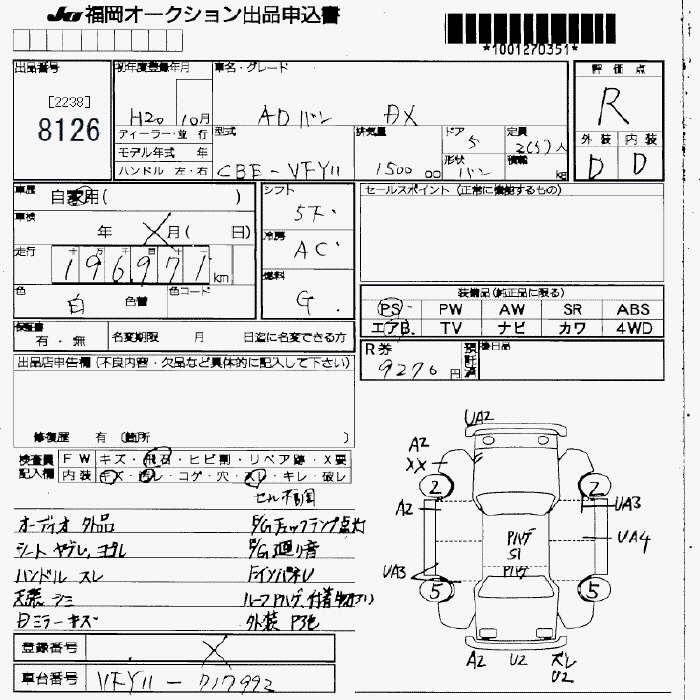 JU 福岡オークション出品申込書
*1001270351*
出品番号
[2238]
8126
初年度登録年月
H20 10月
車名・グレード
ADバン DX
評価点
R
外装 内装
D D
ディーラー・並行
モデル年式 年
ハンドル 左・右
型式
CBE-VFY11
排気量
1500 cc
ドア
5
形状
バン
定員
2(5)人
積載
kg
車歴
自家用( )
車検
年 X月( 日)
走行
196971 km
色
白 色替
色コード
シフト
5F
冷房
AC
燃料
G.
セールスポイント(正常に機能するもの)
装備品(純正品に限る)
PS PW AW SR ABS
エアB. TV ナビ カワ 4WD
検査書
有・無
名変期限 月 日迄に名変できる方
R券
9270円
預託済
後日品
出品店申告欄(不良内容・欠品など具体的に記入して下さい)
修復歴 有 (箇所 )
検査員記入欄
FW キズ・飛石・ヒビ割・リペア跡・X要
内装 キズ・汚レ・コゲ・穴・スレ・キレ・破レ
セル不調
オーディオ 外品
E/Gチェックランプ点灯
シート ヤブレ、ヨゴレ
E/G廻り音
ハンドル スレ
FインパネU
天張 シミ
ルーフPハゲ、付着物有り
日ミラー キズ
外装 P3色
登録番号
X
車台番号
VFY11-717992
UA2
A2
XX
2 2
A2
UA3
Pハゲ
S1
Pハゲ
UA4
UA3
5 5
A2 U2 ズレ
U2